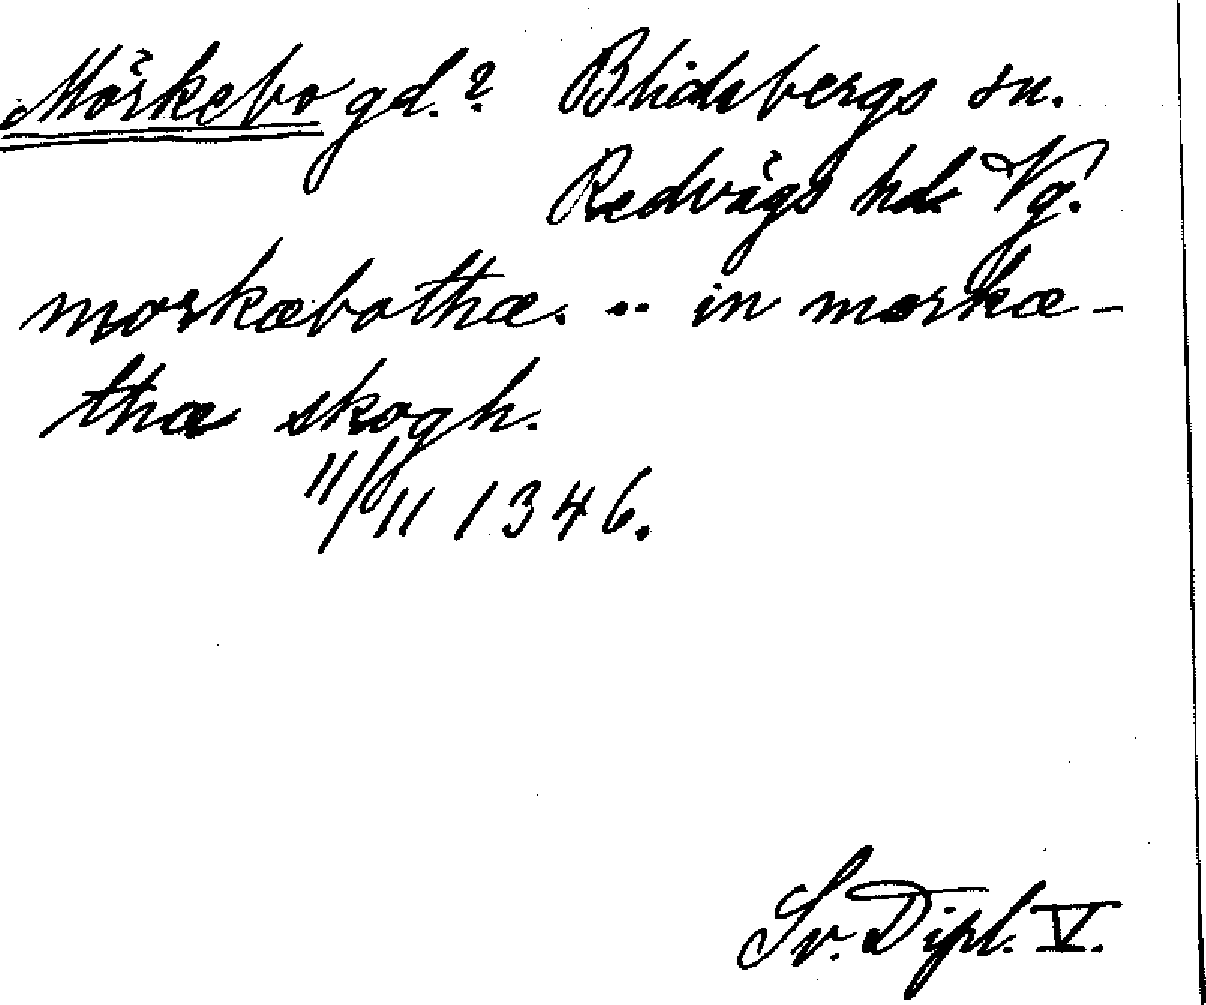 Mörkebo gd.? Blidsbergs sn.
Redvägs hd. Vg.
morkæbothæ. .. in morkæ-
thæ skogh.
11/11 1346.
Sv. Dipl. V.